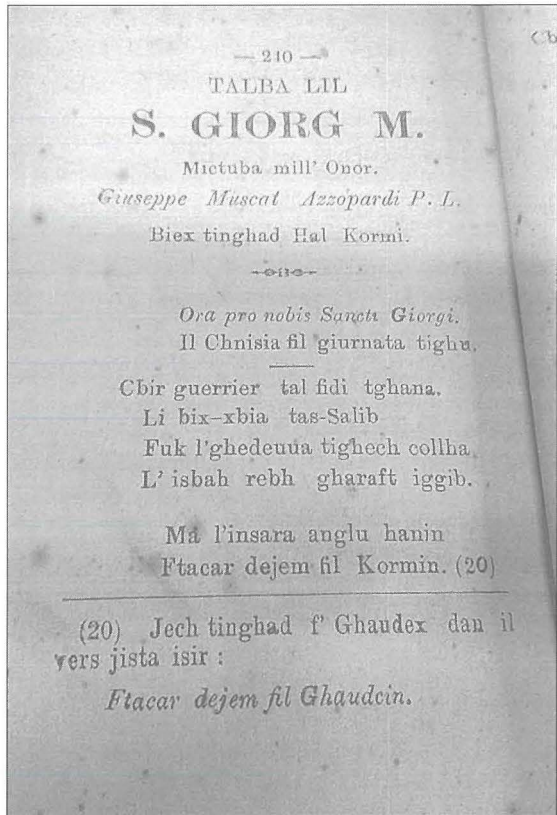 (b
— 240 —
TALBA LIL
S. GIORG M.
Mictuba mill' Onor.
Giuseppe Muscat Azzopardi P. L.
Biex tinghad Hal Kormi.
Ora pro nobis Sancti Giorgi.
Il Chnisia fil giurnata tighu.
Cbir guerrier tal fidi tghana.
Li bix-xbia tas-Salib
Fuk l'ghedeuua tighech collha
L' isbah rebh gharaft iggib.
Ma l'insara anglu hanin
Ftacar dejem fil Kormin. (20)
(20) Jech tinghad f' Ghaudex dan il
vers jista isir :
Ftacar dejem fil Ghaudcin.